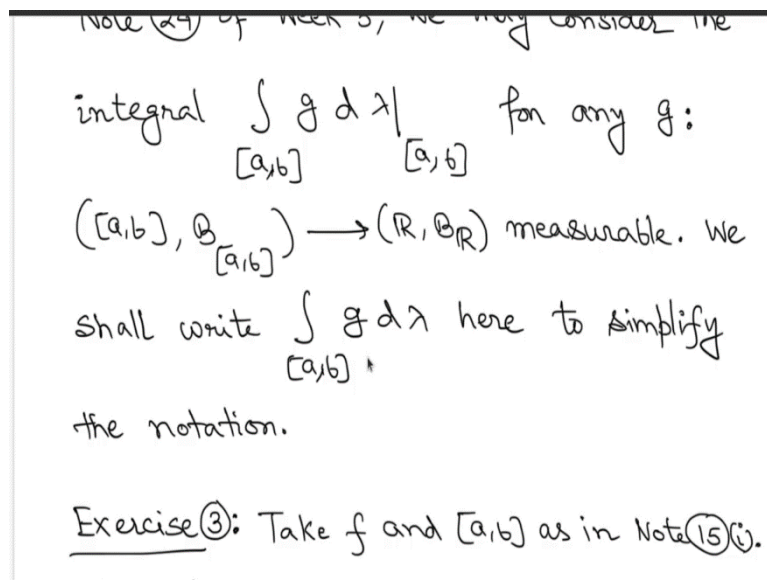 Note (24) of week 5, we may consider the
integral ∫_[a,b] g dλ|_[a,b] for any g:
([a,b], B_[a,b]) → (R, B_R) measurable. We
shall write ∫_[a,b] g dλ here to simplify
the notation.
Exercise (3): Take f and [a,b] as in Note (15)(i).